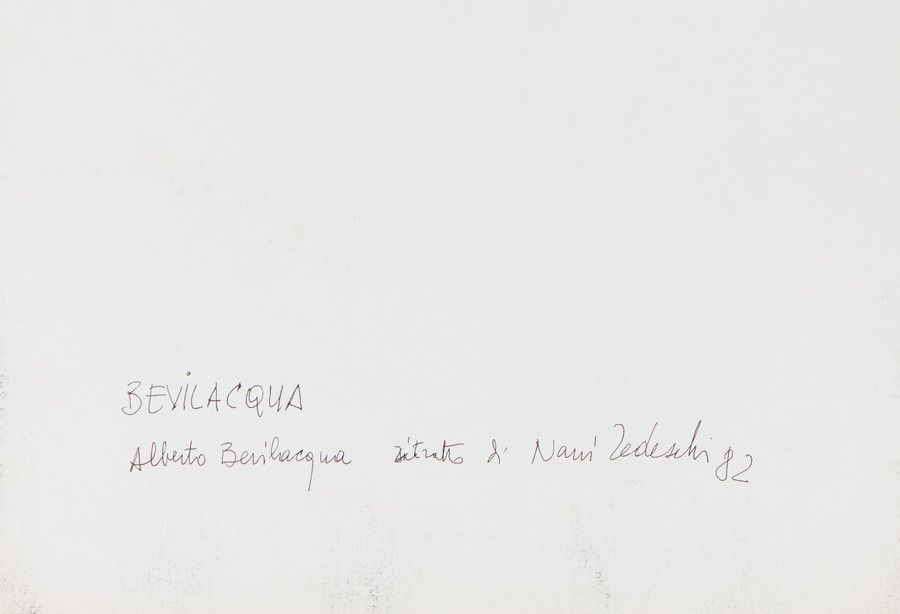 BEVILACQUA
Alberto Bevilacqua ritratto di Nani Tedeschi 82